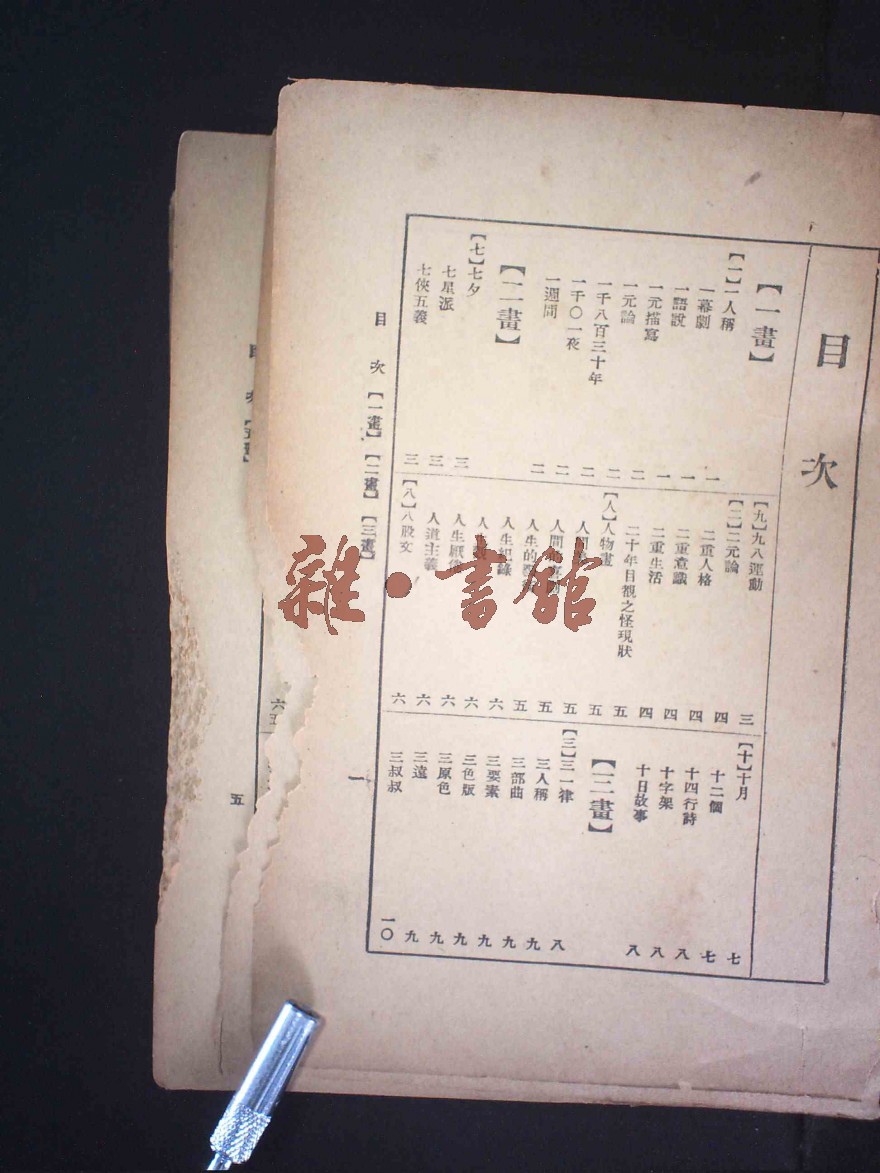 目次
【一畫】
【一】一人稱 一
一幕劇 一
一語說 一
一元描寫 二
一元論 二
一千八百三十年 二
一千〇一夜 二
一週間 二
【二畫】
【七】七夕 三
七星派 三
七俠五義 三
【九】九八運動 三
【二】二元論 四
二重人格 四
二重意識 四
二重生活 四
二十年目覩之怪現狀 五
【人】人物畫 五
人間 五
人間 五
人生的 五
人生記錄 六
人生 六
人生 六
人道主義 六
【八】八股文 六
【十】十月 七
十二個 七
十四行詩 八
十字架 八
十日故事 八
【三畫】
【三】三一律 八
三人稱 九
三部曲 九
三要素 九
三色版 九
三原色 九
三遠 九
三叔叔 一〇
目次【一畫】【二畫】【三畫】
一
五
雜·書館